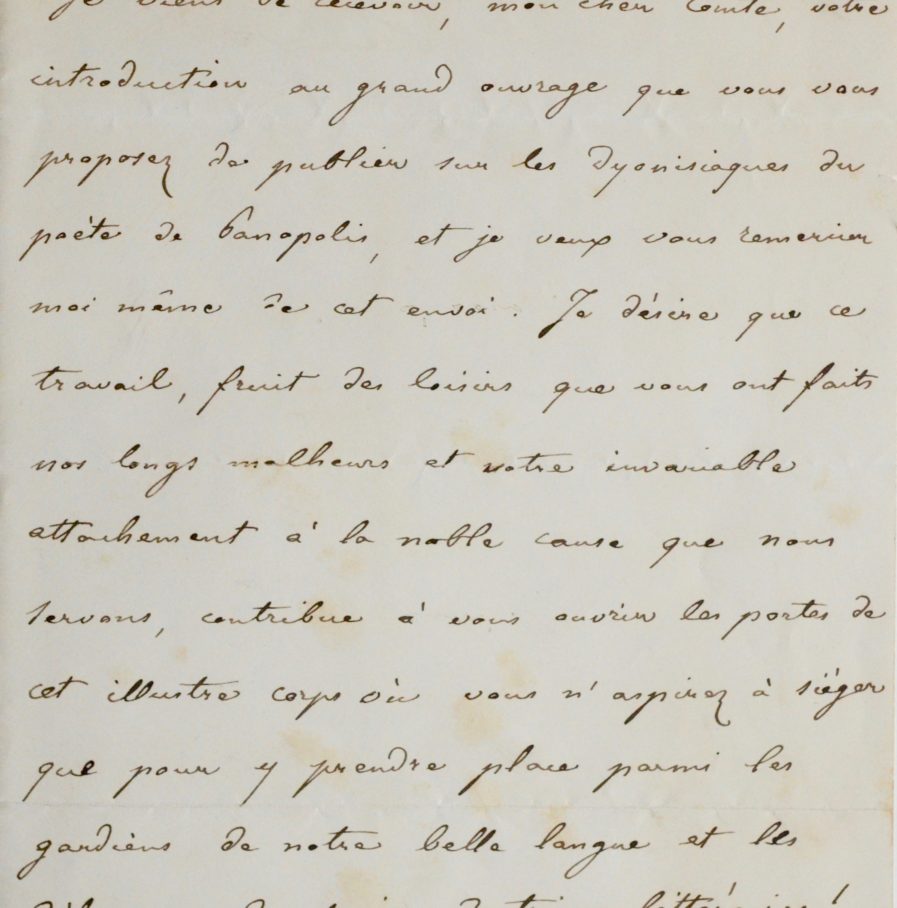 Je viens de recevoir, mon cher Comte, votre
introduction au grand ouvrage que vous vous
proposez de publier sur les Dyonisiaques du
poète de Panopolis, et je veux vous remercier
moi même de cet envoi. Je désire que ce
travail, fruit des loisirs que vous ont faits
nos longs malheurs et votre invariable
attachement à la noble cause que nous
servons, contribue à vous ouvrir les portes de
cet illustre corps où vous n'aspirez à siéger
que pour y prendre place parmi les
gardiens de notre belle langue et les